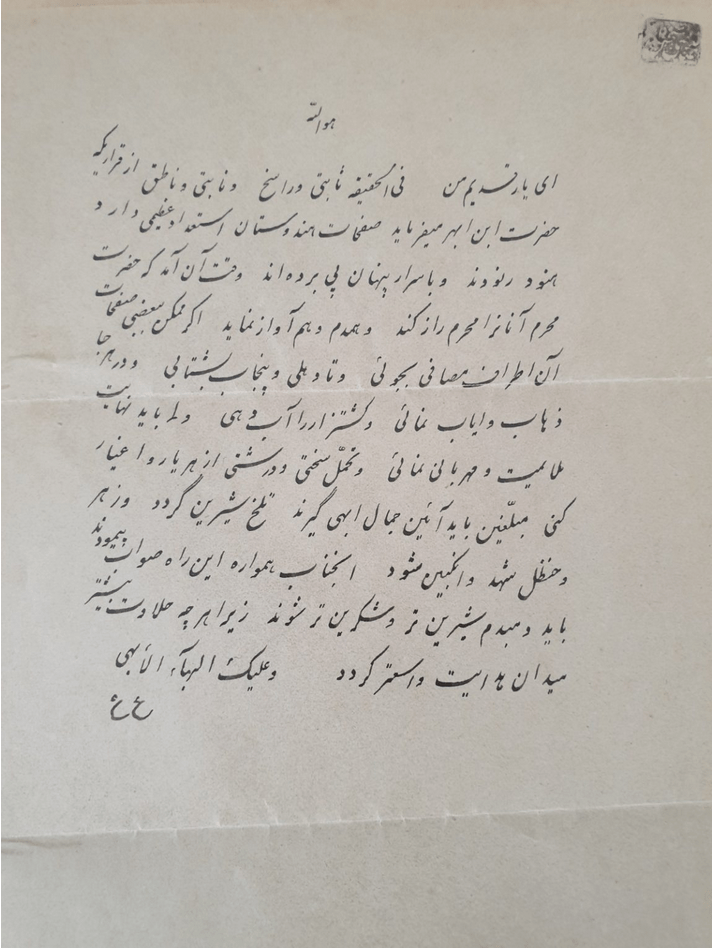 هوالله
ای یار قدیم من فی الحقیقه ثابتی و راسخ و نابتی و ناطق از قراریکه
حضرت ابن ابهر میفرماید صفحات هندوستان استعداد عظیمی دارد و
هنود ربودند و باسرار پنهان پی برده‌اند وقت آن آمد که حضرت
محرم آنانرا محرم راز کند و همدم و هم آواز نماید اگر ممکن ببعضی صفحات
آن اطراف مصافی بجوئی و تا دهلی و پنجاب بشتابی و در هر جا
ذهاب و ایاب نمائی و کشتزار را آب دهی ولی باید نهایت
ملایمت و مهربانی نمائی و تحمّل سختی و درشتی از هر یار و اغیار
کنی مبلّغین باید آئین جمال ابهی گیرند تلخ شیرین گردد و زهر
و حنظل شهد و انگبین شود انجناب همواره این راه صواب پیمودند
باید دمبدم شیرین تر و شکرین تر شوند زیرا هر چه حلاوت بیشتر
میدان هدایت واسعتر گردد و علیک البهآء الأبهی
ع ع